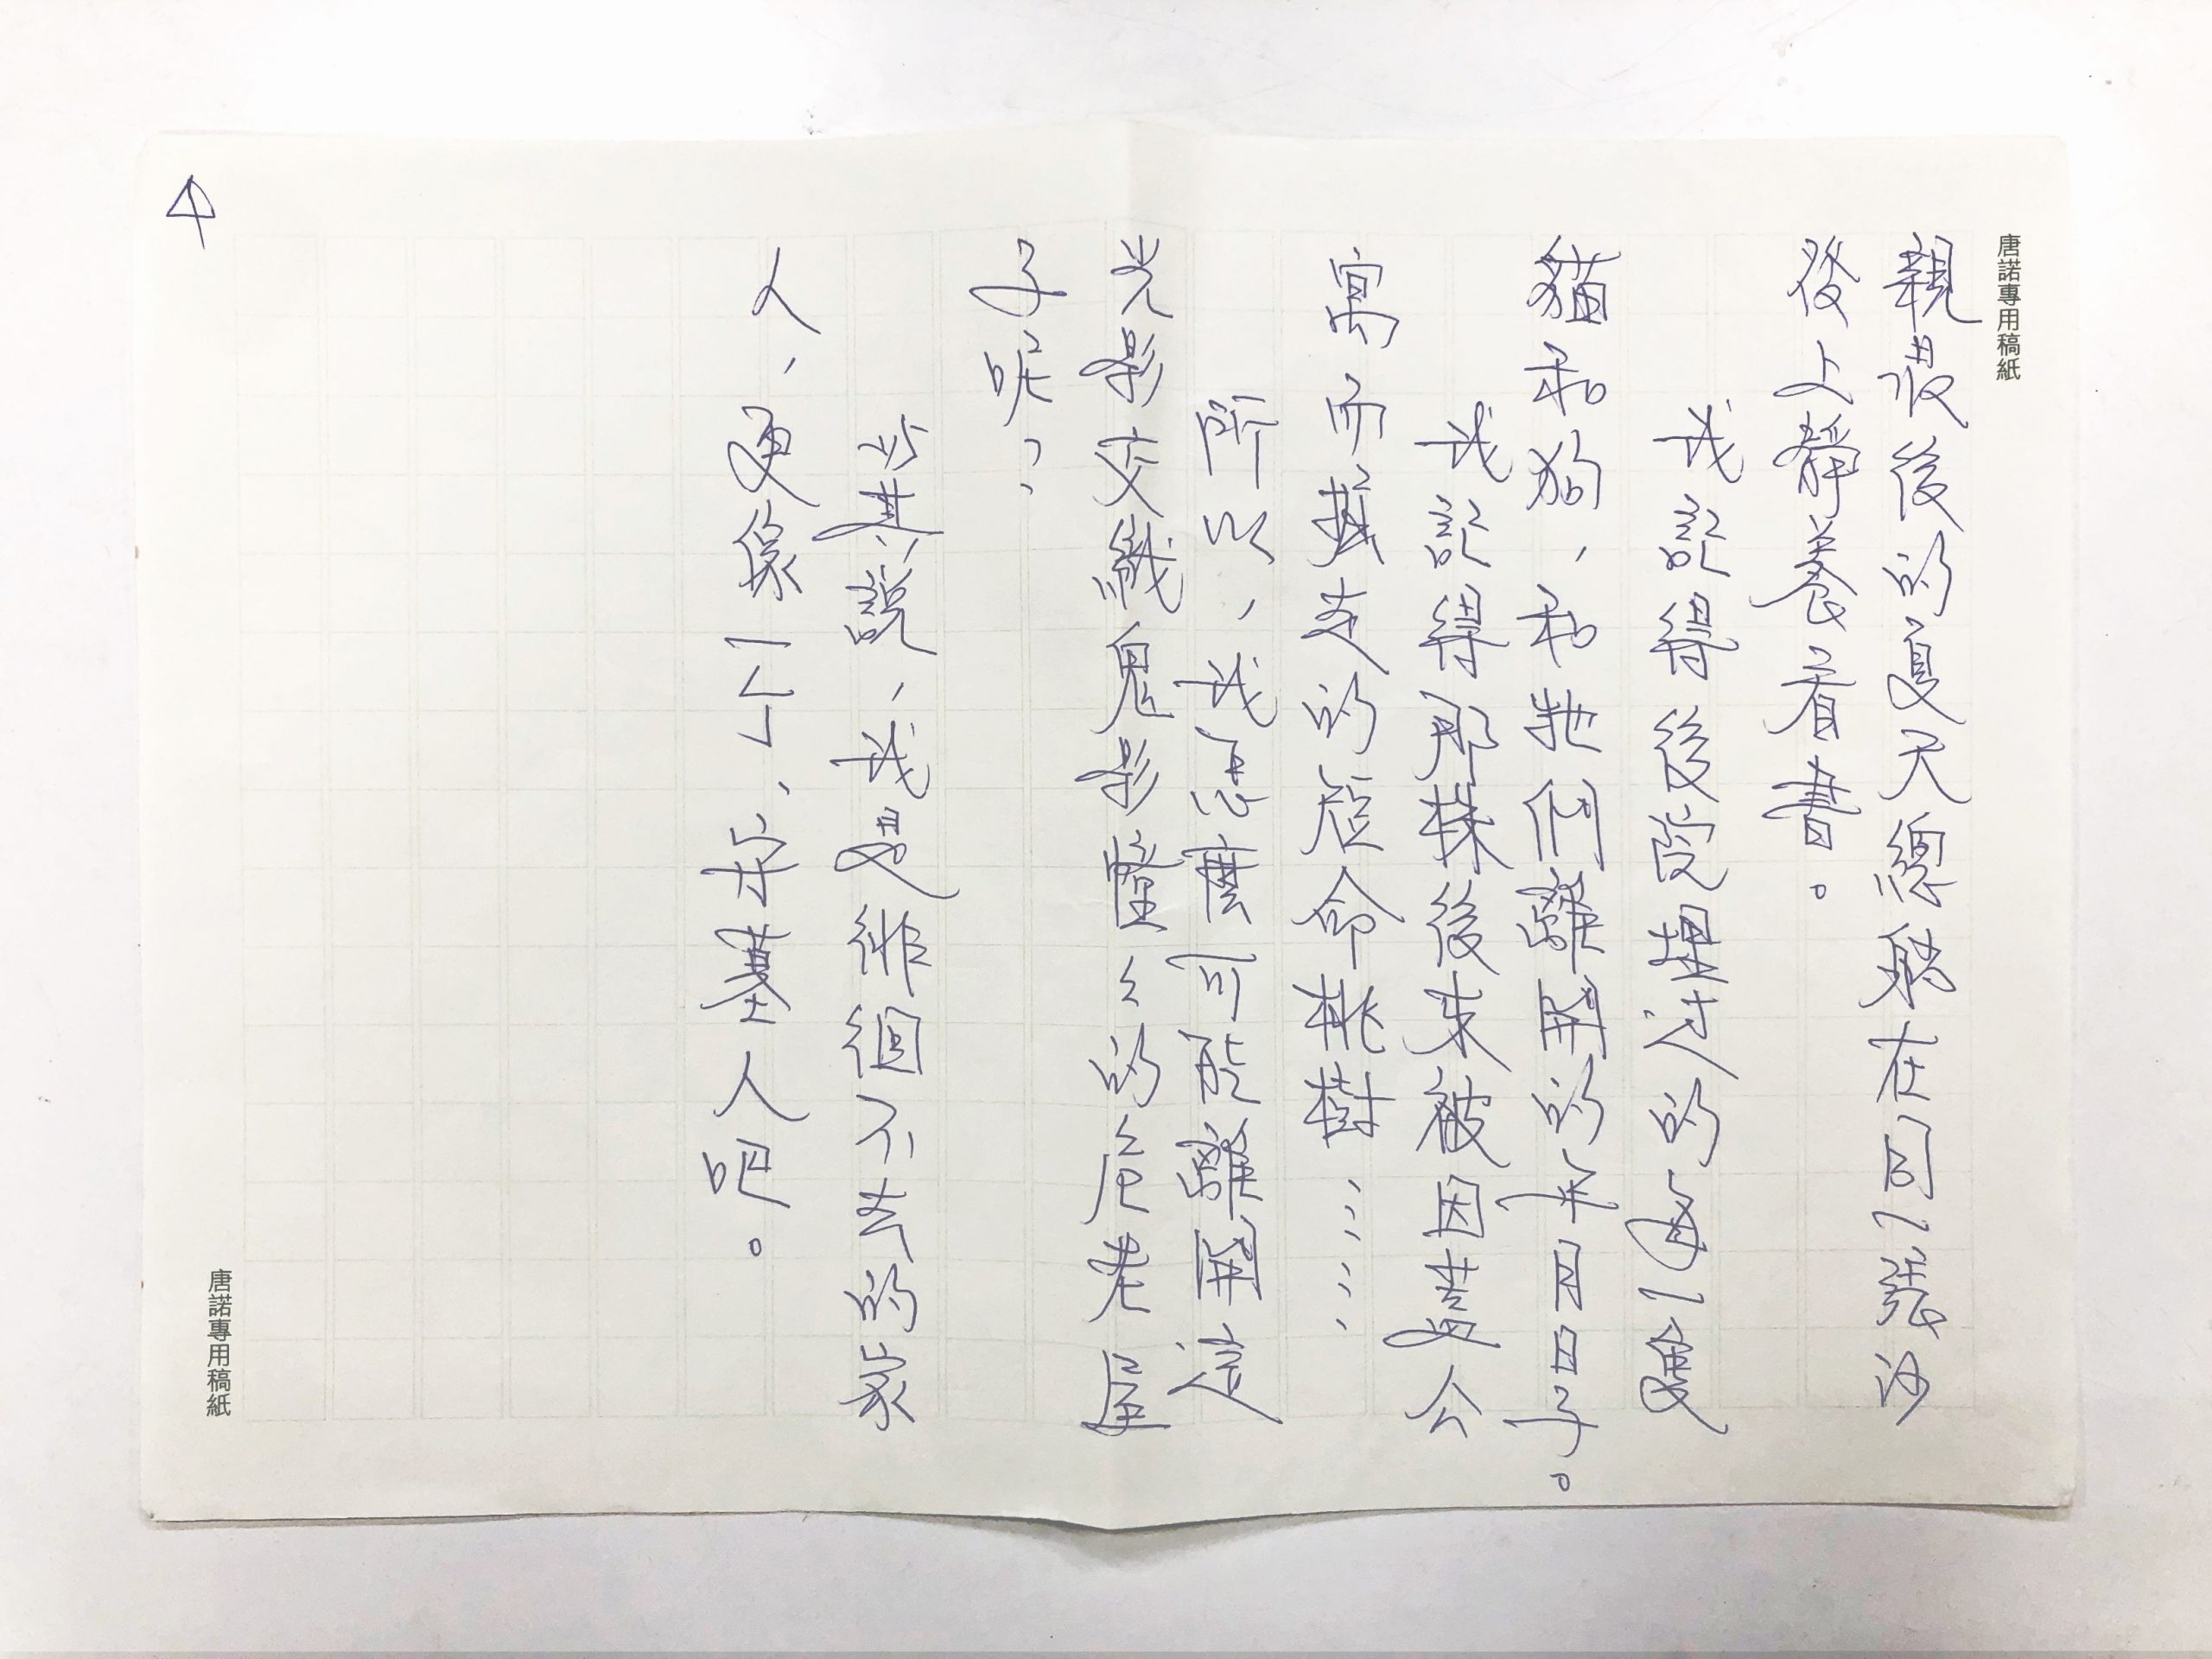 唐諾專用稿紙
親歿後的夏天總愛在同一張沙
後上靜養看書。
我記得後院輩過的每一隻
貓和狗，和牠們離開的年月日子。
我記得那棵後來被因嘉公
寓而截走的短命桃樹……
所以，我怎麼可能離開這
光影交織鬼影幢幢的危老屋
子呢？，
與其說，我是徘徊不去的家
人，更像一ㄥˋ，于墓人吧。
4
唐諾專用稿紙